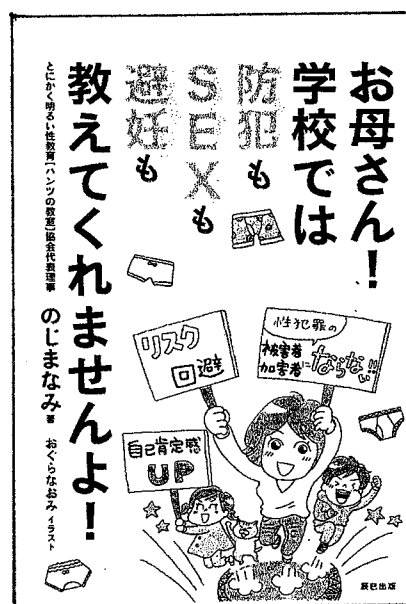 お母さん!
学校では
防犯も
SEXも
避妊も
教えてくれませんよ!
とにかく明るい性教育【パンツの教室】協会代表理事
のじまなみ 著
おぐらなおみ イラスト
リスク
回避
性犯罪の
被害者
加害者に
ならない!!
自己肯定感
UP
辰巳出版